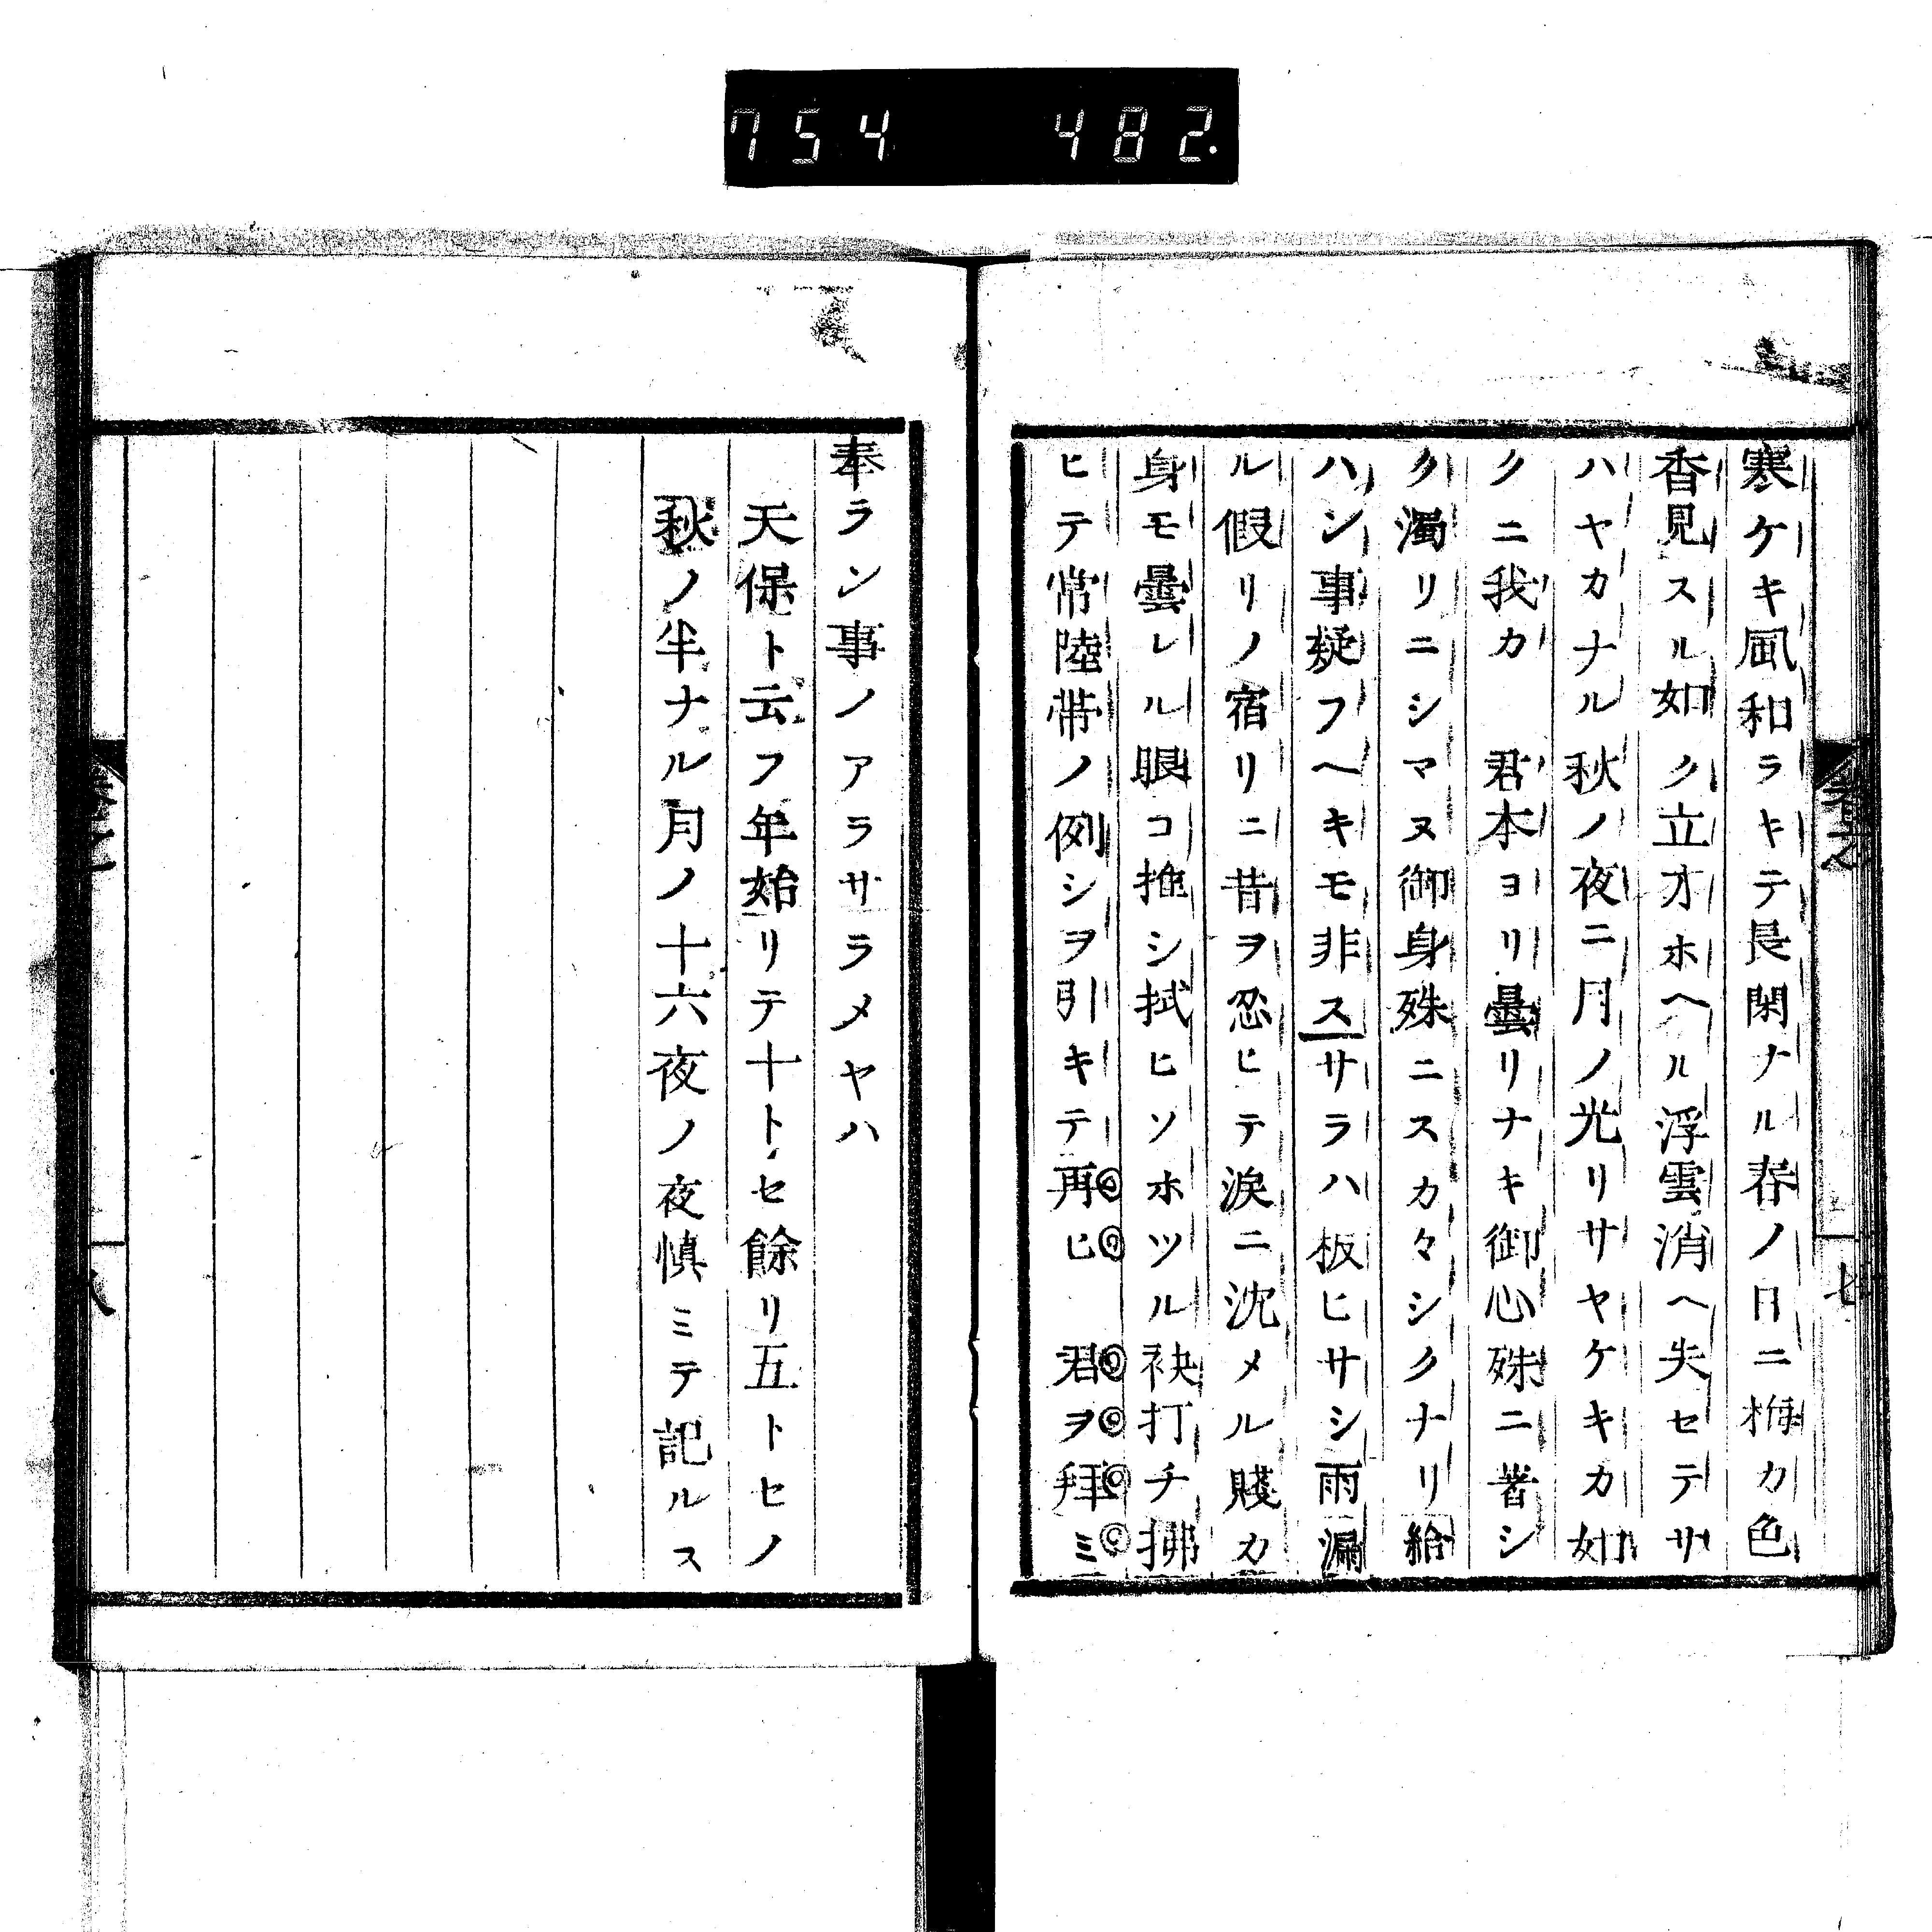 754 482.
寒ケキ風和ラキテ長閑ナル春ノ日ニ梅カ色
香見スル如ク立オホヘル浮雲消ヘ失セテサ
ハヤカナル秋ノ夜ニ月ノ光リサヤケキカ如
クニ我カ 君本ヨリ曇リナキ御心殊ニ著シ
ク濁リニシマヌ御身殊ニスカ々シクナリ給
ハン事疑フヘキモ非スサラハ板ヒサシ雨漏
ル假リノ宿リニ昔ヲ忍ヒテ淚ニ沈メル賤カ
身モモ曇レル眼コ推シ拭ヒソホツル袂打チ拂
ヒテ常陸帶ノ例シヲ引キテ再ヒ 君ヲ拜ミ
七
奉ラン事ノアラサラメヤハ
天保ト云フ年始リテ十トセ餘リ五トセノ
秋ノ半ナル月ノ十六夜ノ夜愼ミテ記ルス
八